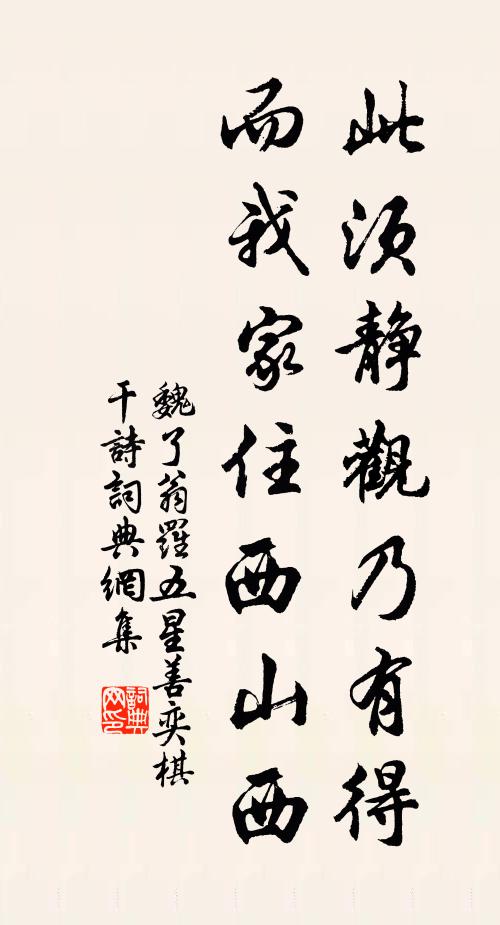 此須靜觀乃有得
而我家住西山西
魏了翁羅五星善奕棋
于詩詞典網集
詞典网印